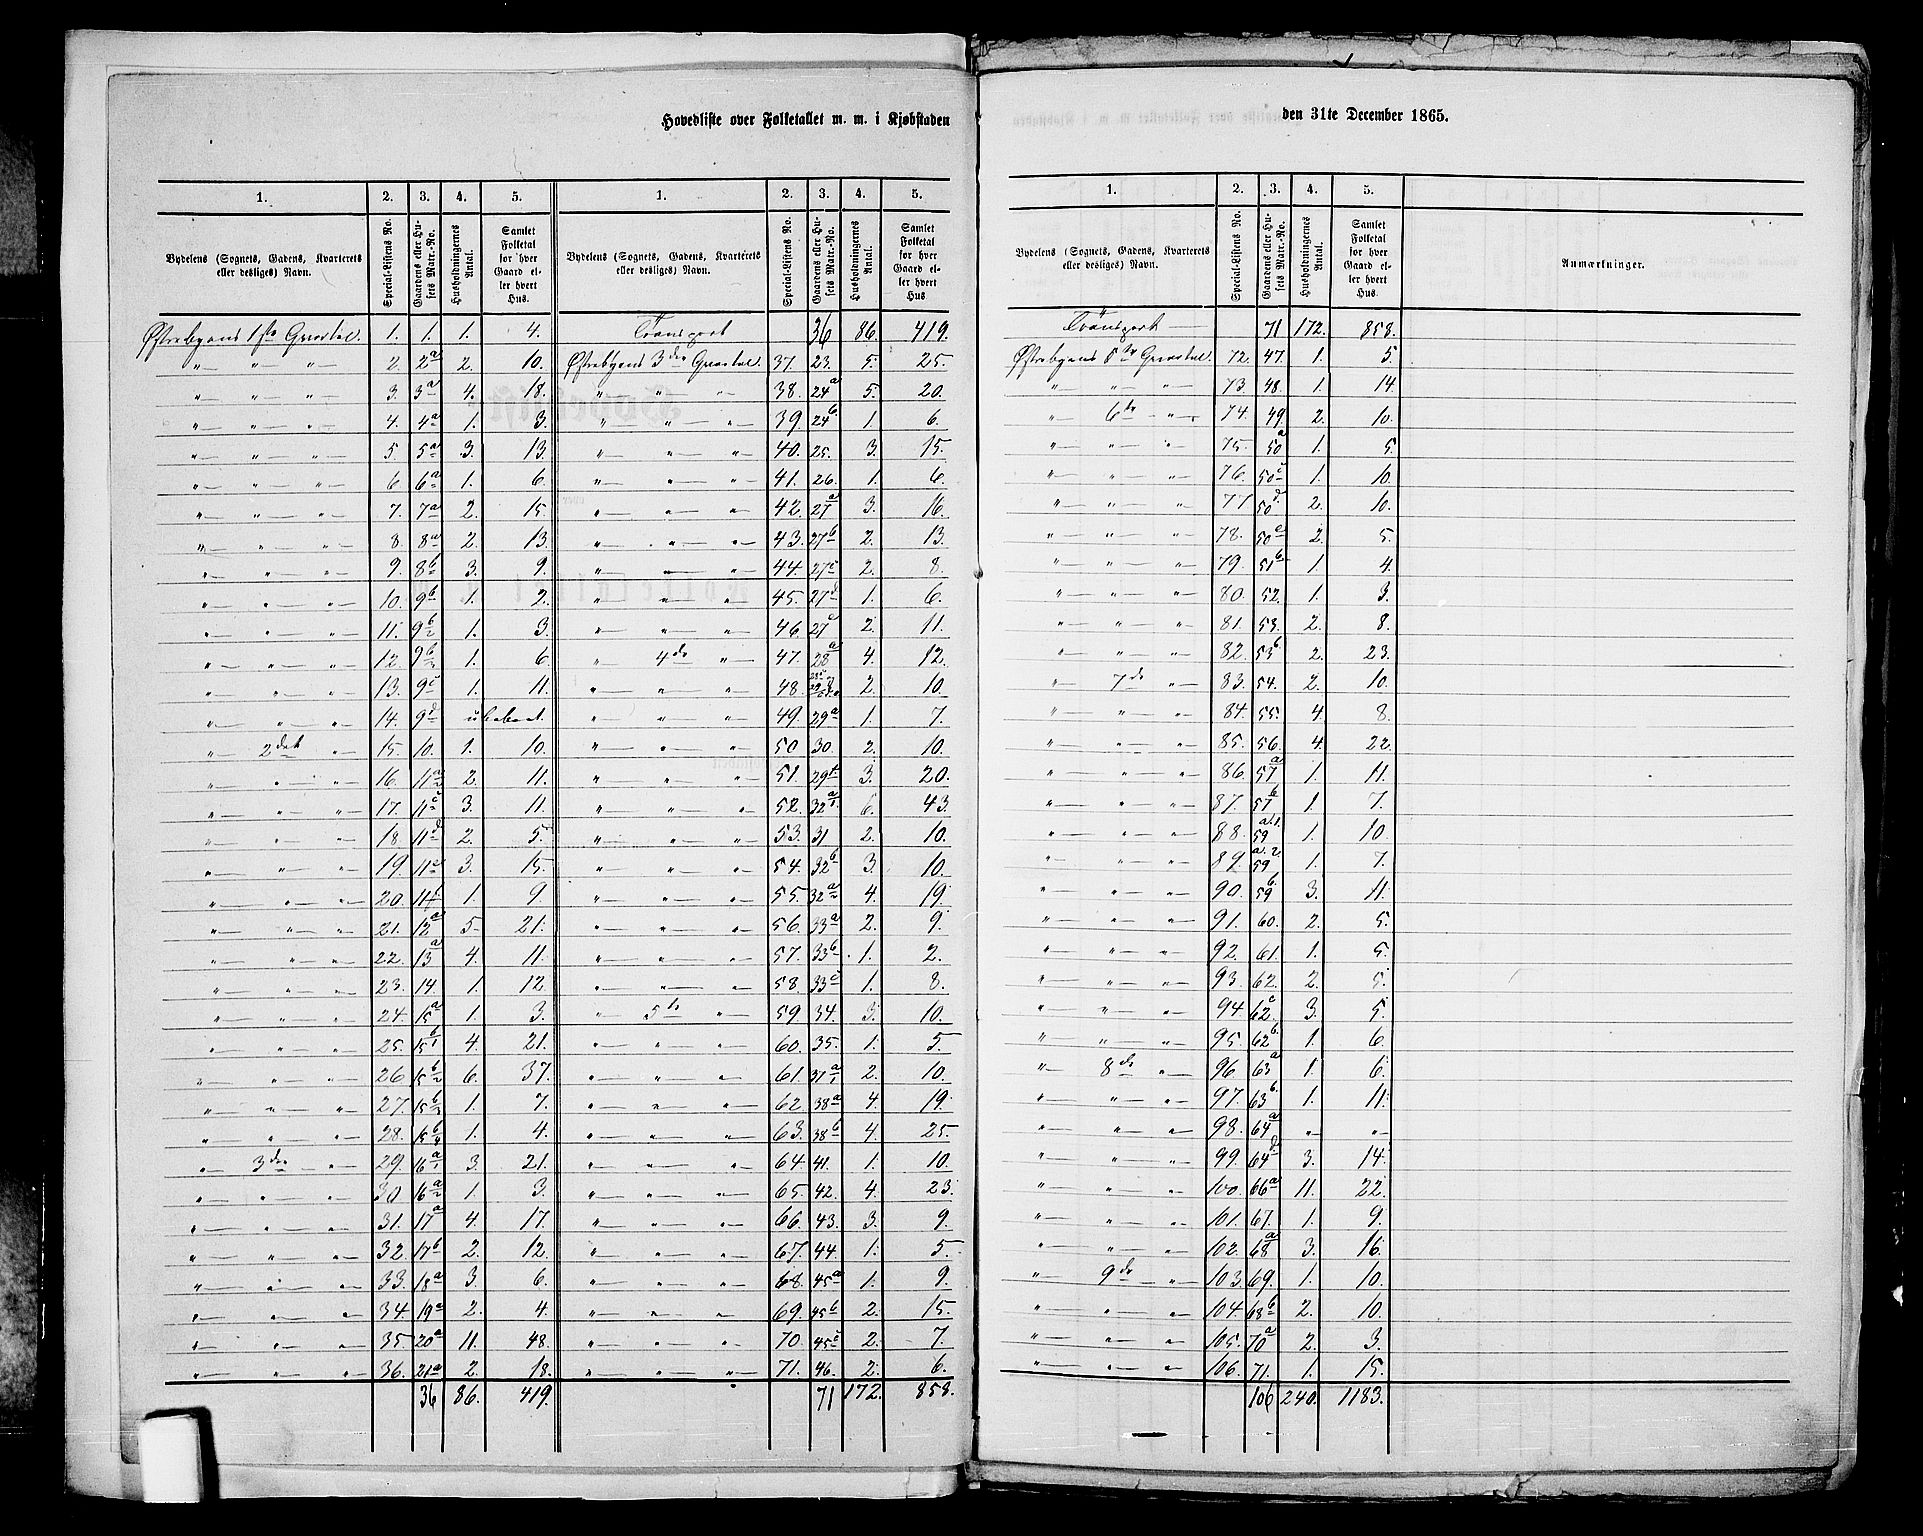 Hovedliste over Folketallet m. m. i Kjøbstaden
1. 2. 3. 4. 5. 1. 2. 3. 4. 5.
Bydelens (Sognets, Gadens, Kvarterets eller desliges) Navn. Special-Listens No. Gaardens eller Husets Matr.-No. Husholdningernes Antal. Samlet Folketal for hver Gaard eller hvert Hus. Bydelens (Sognets, Gadens, Kvarterets eller desliges) Navn. Special-Listens No. Gaardens eller Husets Matr.-No. Husholdningernes Antal. Samlet Folketal for hver Gaard eller hvert Hus
Østrebyens 1ste Qvartal. 1. 1. 1. 4. Transport 36 86. 419.
„ „ „ 2. 2a 2. 10. Østrebyens 3die Qvartal. 37. 23. 5. 25.
„ „ „ 3. 3a 4. 18. „ „ „ 38. 24a 5. 20.
„ „ „ 4. 4a 1. 3. „ „ „ 39. 24b. 1. 6.
„ „ „ 5. 5a 3. 13. „ „ „ 40. 25. 3. 15.
„ „ „ 6. 6a 1. 6. „ „ „ 41. 26. 1. 6.
„ „ „ 7. 7a 2. 15. „ „ „ 42. 27a 3. 16.
„ „ „ 8. 8a 2. 13. „ „ „ 43. 27b 2. 13.
„ „ „ 9. 8b 3. 9. „ „ „ 44. 27c 2. 8.
„ „ „ 10. 9b 1. 2. „ „ „ 45. 27d 1. 6.
„ „ „ 11. 9b/2 1. 3. „ „ „ 46 27e 2. 11.
„ „ „ 12. 9b/2 1. 6. „ 4de „ 47. 28a 4. 12.
„ „ „ 13. 9c 1. 11. „ „ „ 48. 2. 10.
„ „ „ 14. 9d ubeboet. „ „ „ 49. 29a 1. 7.
„ 2det „ 15. 10. 1. 10. „ „ „ 50 30. 2. 10.
„ „ „ 16. 11a/2 2. 11. „ „ „ 51. 3. 20.
„ „ „ 17. 11c 3. 11. „ „ „ 52. 32a/1 6. 43.
„ „ „ 18 11d 2. 5. „ „ „ 53. 31 2. 10.
„ „ „ 19. 11e 3. 15. „ „ „ 54. 32b 3. 10.
„ „ „ 20. 11f 1. 9 „ „ „ 55. 32a/2 4. 19.
„ „ „ 21. 12a 5. 21. „ „ „ 56. 33a 2. 9.
„ „ „ 22. 13a 4. 11. „ „ „ 57. 33b 1. 2.
„ „ „ 23. 14. 1. 12. „ „ „ 58. 33c 1. 8.
„ „ „ 24. 15a 1. 3. „ 5te „ 59 34. 3. 10.
„ „ „ 25. 15b/1 4. 21. „ „ „ 60. 35. 1. 5.
„ „ „ 26 15b/2 6. 37. „ „ „ 61. 37a/1 2. 10.
„ „ „ 27. 15b/3 1. 7. „ „ „ 62. 38a 4. 19.
„ „ „ 28. 15b/4 1. 4. „ „ „ 63. 38b 4. 25.
„ 3die „ 29. 16a/1 3. 21. „ „ „ 64. 41. 1. 10.
„ „ „ 30 16a/2 1. 3. „ „ „ 65. 42. 4. 23.
„ „ „ 31. 17a 4. 17. „ „ „ 66. 43. 3. 9.
„ „ „ 32. 17b 2. 12. „ „ „ 67. 44. 1. 5.
„ „ „ 33. 18a 3. 6. „ „ „ 68. 45a 1. 9.
„ „ „ 34. 19a 2. 4. „ „ „ 69. 45b 2. 15.
„ „ „ 35. 20a 11. 48. „ „ „ 70. 45c 2. 7.
„ „ „ 36. 21a 2. 18. „ „ „ 71. 46. 2. 6.
36 86. 419. 71 172. 858.
den 31te December 1865.
1. 2. 3. 4. 5.
Bydelens (Sognets, Gadens, Kvarterets eller desliges) Navn. Special-Listens No. Gaardens eller Husets Matr.-No. Husholdningernes Antal. Samlet Folketal for hver Gaard eller hvert Hus. Anmærkninger.
Transport 71 172. 858.
Østrebyens 5te Qvartal. 72. 47. 1. 5.
„ „ „ 73. 48. 1. 14.
„ 6te „ 74. 49. 2. 10.
„ „ „ 75. 50a 1. 5.
„ „ „ 76. 50c 1. 10.
„ „ „ 77 50d. 2. 10.
„ „ „ 78. 50e 2. 5.
„ „ „ 79. 51b. 1. 4.
„ „ „ 80. 52. 1. 3.
„ „ „ 81. 53. 2. 8.
„ „ „ 82. 53b. 2. 23.
„ 7de „ 83. 54. 2. 10.
„ „ „ 84. 55. 4. 8.
„ „ „ 85. 56. 4. 22.
„ „ „ 86. 57a 1. 11.
„ „ „ 87. 57b 1. 7.
„ „ „ 88. 59a.1. 1. 10.
„ „ „ 89. 59a.2. 1. 7.
„ „ „ 90. 59b. 3. 11.
„ „ „ 91. 60. 2. 5.
„ „ „ 92. 61. 1. 5.
„ „ „ 93. 62. 2. 5.
„ „ „ 94 62c. 3. 5.
„ „ „ 95. 62b. 1. 6.
„ 8de „ 96. 63a 1. 6.
„ „ „ 97. 63b. 1. 11.
„ „ „ 98. 64a „ „
„ „ „ 99. 64d. 3. 14.
„ „ „ 100. 66a 11. 22.
„ „ „ 101. 67. 1. 9.
„ „ „ 102. 68a 3. 16.
„ 9de „ 103. 69. 1. 10.
„ „ „ 104. 68b 2. 10.
„ „ „ 105. 70a 2. 3.
„ „ „ 106. 71. 1. 15.
106 240. 1183.